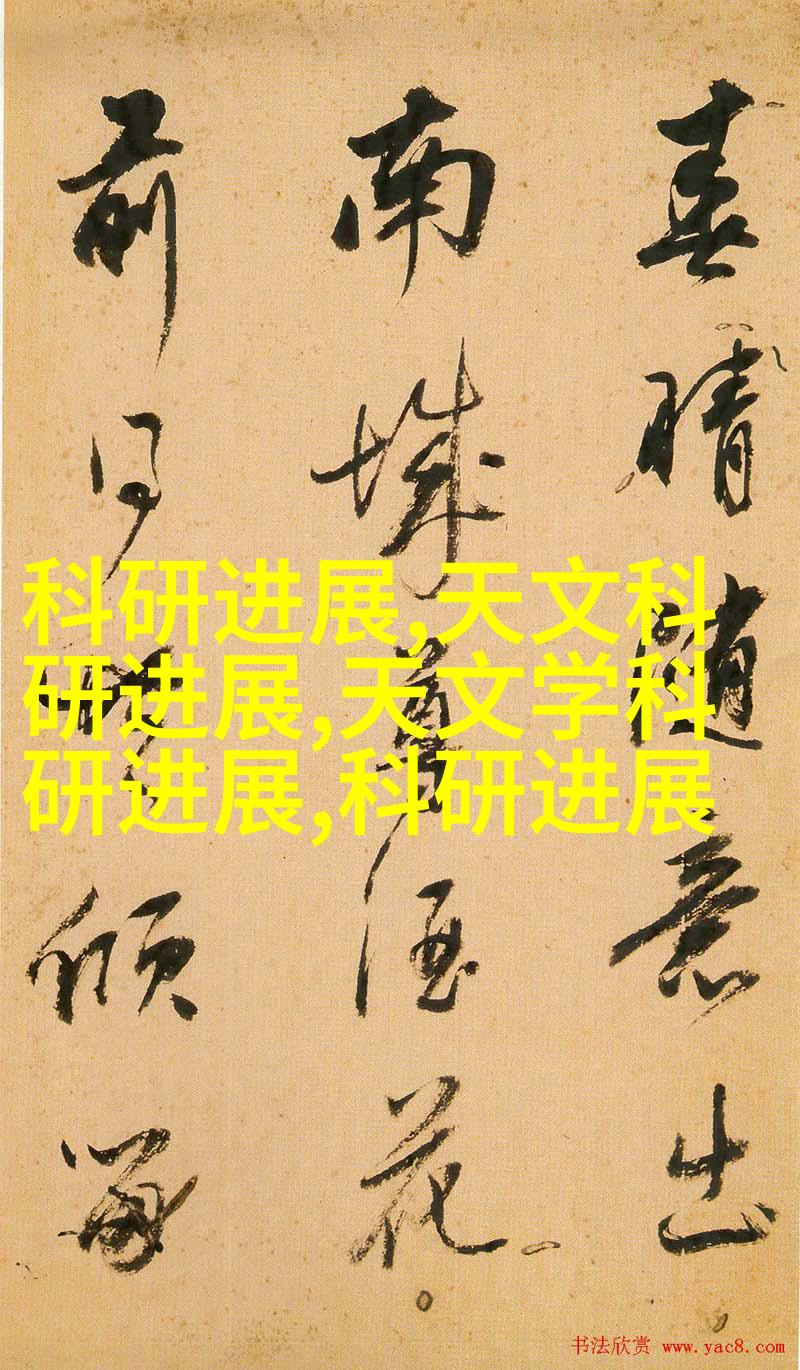 春晴随意出
南城尊酒花
前同倾
科研进展,天文科
研进展,天文学科
研进展,科研进展
书法欣赏 www.yac8.com